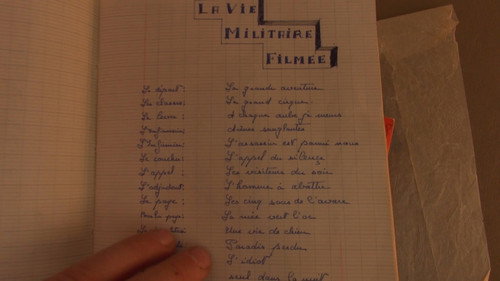 LA VIE
MILITAIRE
FILMÉE
Le départ : La grande aventure
La classe : Le grand cirque
Le : A chaque aube je meurs
: Arènes sanglantes
L'infirmier : L'assassin est parmi nous
Le coucher : L'appel du silence
L'appel : Les visiteurs du soir
L'adjudant : L'homme à abattre
La paye : Les cinq sous de l'avare
La mère vert l'
Une vie de chien
Paradis perdu
L'idiot
seul dans la nuit